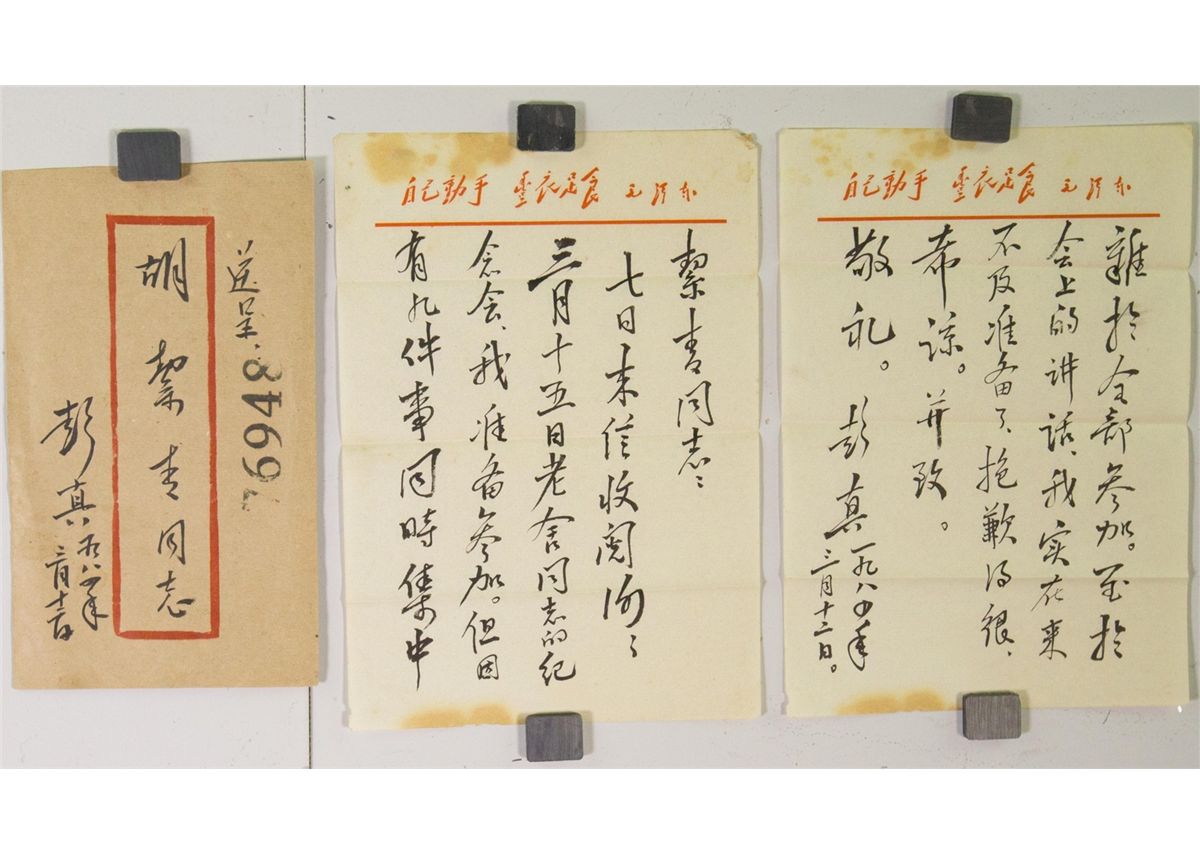 送呈、
6948
胡絜青同志
彭真 一九八四年
三月十二日
自己動手 豐衣足食 毛泽东
絜青同志：
七日来信收阅
三月十五日老舍同志的纪
念会、我准备参加。但因
有几件事同時集中
自己動手 豐衣足食 毛泽东
難於全部参加。至於
会上的讲话、我实在来
不及准备了、抱歉得很、
希谅。并致
敬礼。 彭真 一九八四年
三月十二日。